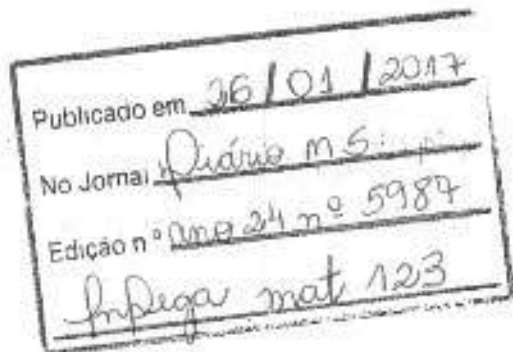 Publicado em 26/01/2017
No Jornal Diário MS
Edição nº ano 24 nº 5987
mat 123